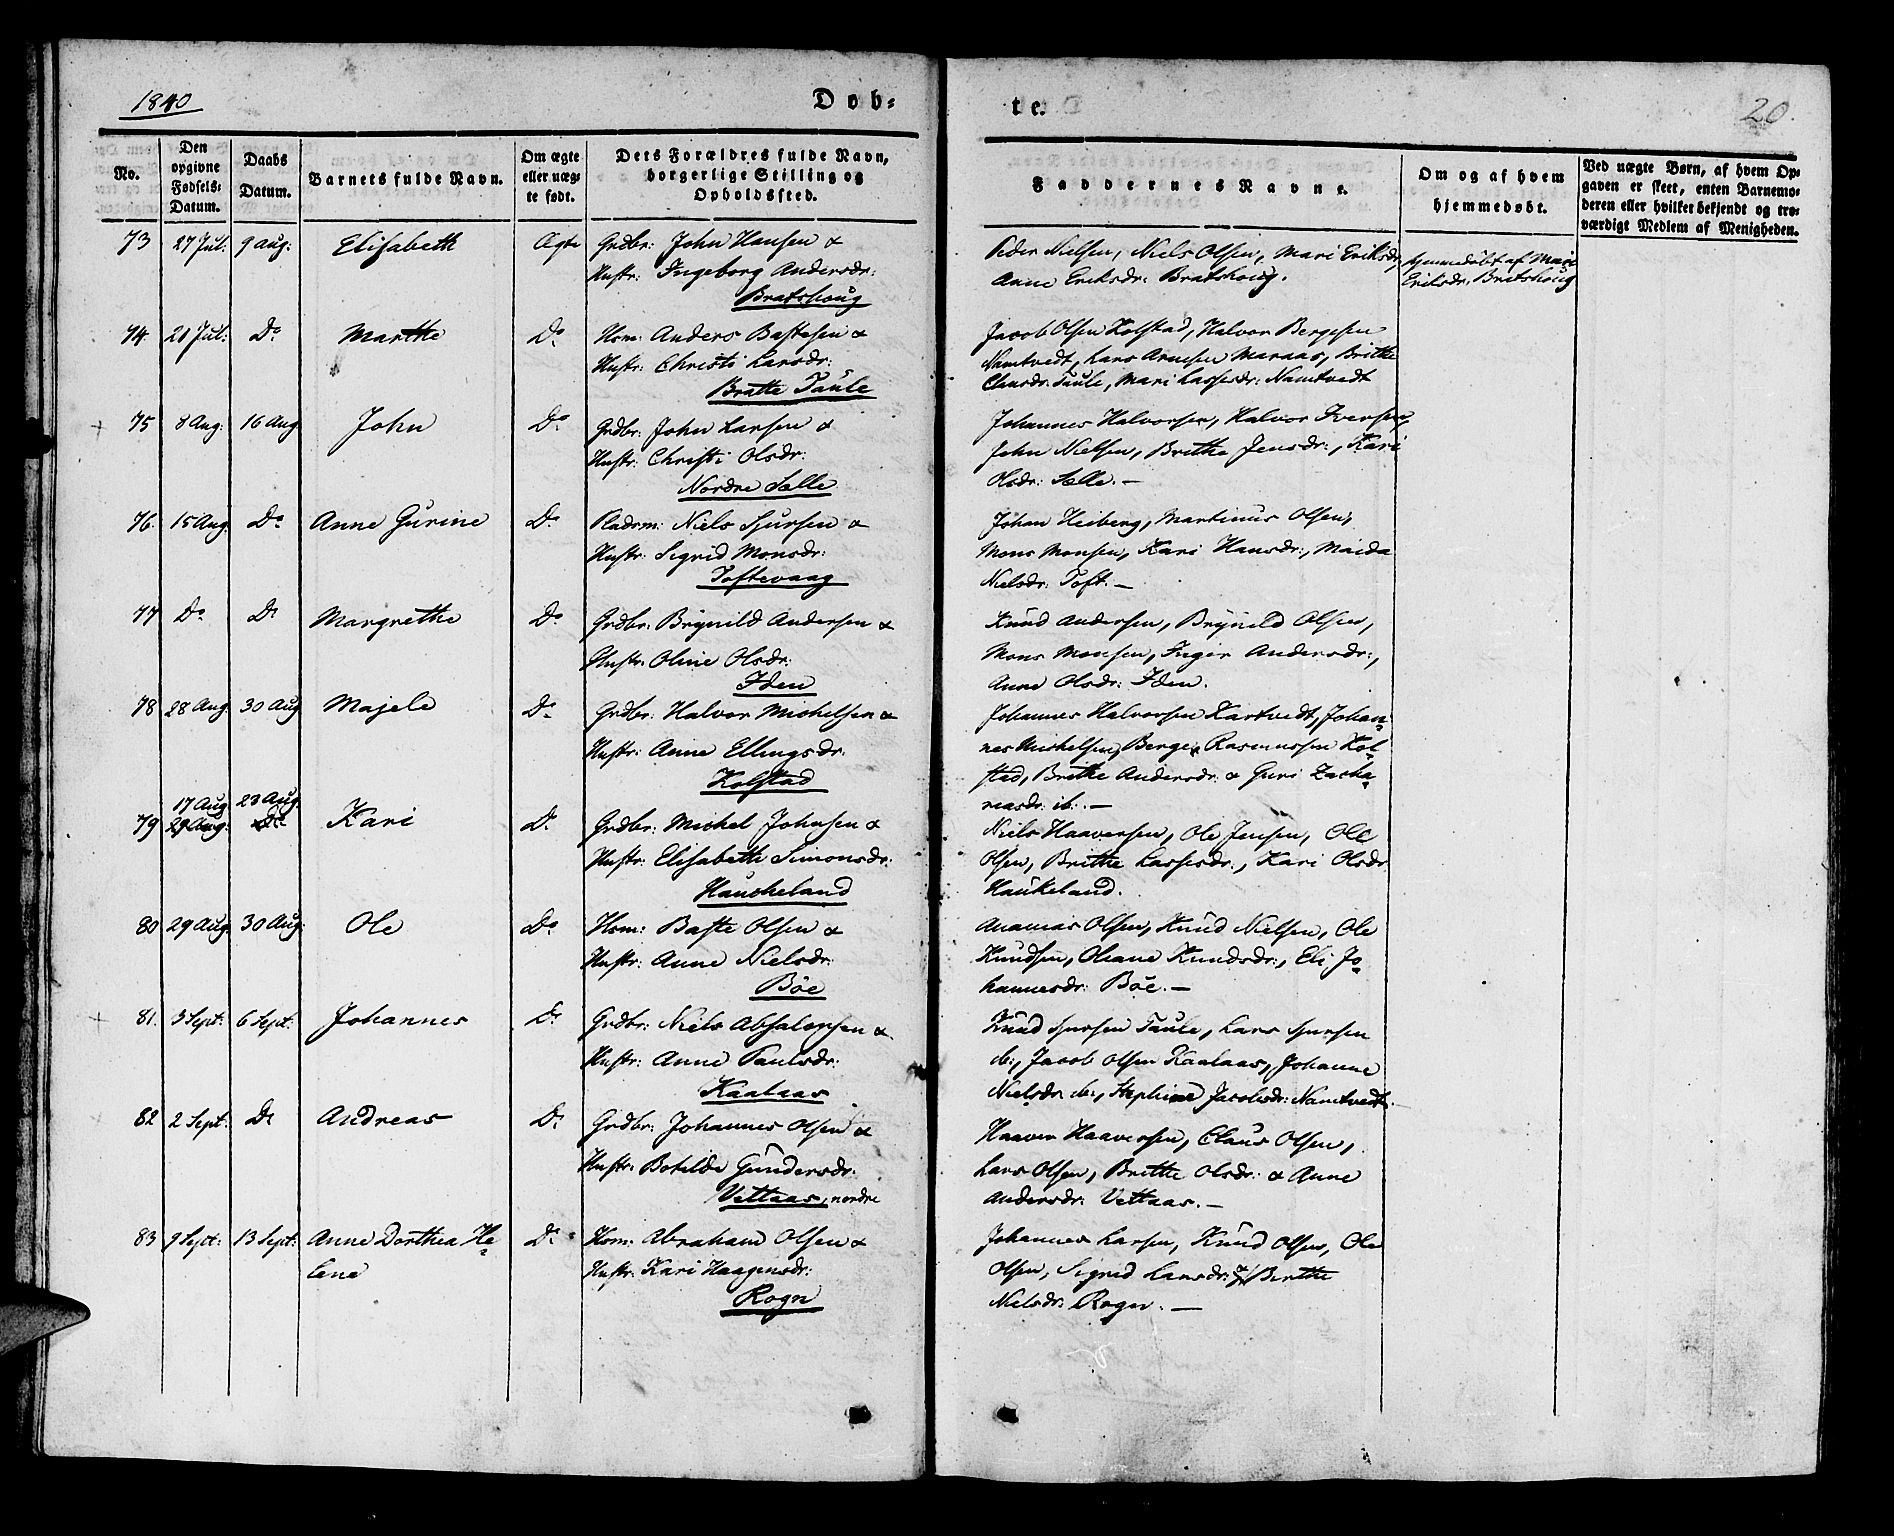 1840
Døb-
te.
20.
No.
Den opgivne Fødsels-Datum.
Daabs Datum.
Barnets fulde Navn.
Om ægte eller uæg-te født.
Dets Forældres fulde Navn, borgerlige Stilling og Opholdssted.
Faddernes Navne.
Om og af hvem hjemmedøbt.
Ved uægte Børn, af hvem Op-gaven er skeet, enten Barnemo-deren eller hvilket bekjendt og tro-værdigt Medlem af Menigheden.
73 27 Jul: 9 Aug: Elisabeth Ægte Grdbr: John Hansen &
Hustr: Ingeborg Andersdr:
Bratshoug
Peder Nielsen, Niels Olsen, Mari Eriksdr,
Anne Eriksdr: Bratshoug.
hjemmedøbt af Mari
Eriksdr: Bratshoug
74. 28 Jul: Do Marthe Do Hsm: Anders Bastesen &
Hustr: Christi Larsdr:
Bratte Taule
Jacob Olsen Kolstad, Halvor Bergesen
Namtvedt, Lars Arnesen Maraas, Brithe
Clausdr: Taule, Mari Lassesdr: Namtvedt
75 8 Aug: 16 Aug John Do Grdbr: John Larsen &
Hustr: Christi Olsdr:
Nordre Sælle
Johannes Halvorsen, Halvor Iversen,
John Nielsen, Brithe Jensdr:, Kari
Olsdr: Sælle. —
76. 15 Aug Do Anne Gurine Do Pladsm: Niels Sjursen &
Hustr: Sigrid Monsdr:
Toftevaag
Johan Heiberg, Martinus Olsen,
Mons Monsen, Kari Hansdr:,
Nielsdr: Toft. —
77 Do Do Margrethe Do Grdbr: Brynild Andersen &
Hustr: Oline Olsdr:
Iden
Knud Andersen, Brynild Olsen,
Mons Monsen, Inger Andersdr:,
Anne Olsdr: Iden.
78 28 Aug. 30 Aug Majele Do Grdbr: Halvor Michelsen &
Hustr: Anne Ellingsdr.
Kolstad
Johannes Halvorsen Kartvedt, Johan-
nes Michelsen, Berge Rasmussen Kol-
stad, Brithe Andersdr: & Guri Zacha-
riasdr: ib: —
17 Aug 23 Aug
79 29 Aug: Do Kari Do Grdbr: Michel Johnsen &
Hustr: Elisabeth Simonsdr:
Haucheland
Niels Haaversen, Ole Jensen, Ole
Olsen, Brithe Lassesdr:, Kari Olsdr
Haukeland.
80 29 Aug 30 Aug: Ole Do Hsm: Baste Olsen &
Hustr: Anne Nielsdr:
Böe
Ananias Olsen, Knud Nielsen, Ole
Knudsen, Oliane Knudsdr:, Eli Jo-
hannesdr: Böe. —
81. 3 Sept: 6 Sept: Johannes Do Grdbr: Niels Absalonsen &
Hustr: Anne Paulsdr:
Kaalaas
Knud Sjursen Taule, Lars Sjursen
do:, Jacob Olsen Kaalaas, Johanne
Nielsdr do:, Stephine Jacobsdr: Namtvedt.
82 2 Sept: Do Andreas Do Grdbr: Johannes Olsen &
Hustr: Botilde Gundersdr:
Vettaas, nordre
Haaver Haaversen, Claus Olsen,
Lars Olsen, Brithe Olsdr: & Anne
Andersdr: Vettaas. —
83 9 Sept: 13 Sept: Anne Dorthea He-
lene
Do Hsm: Abraham Olsen &
Hustr: Kari Haagensdr:
Rogn
Johannes Larsen, Knud Olsen, Ole
Olsen, Sigrid Larsdr: & Berthe
Nielsdr: Rogn. —